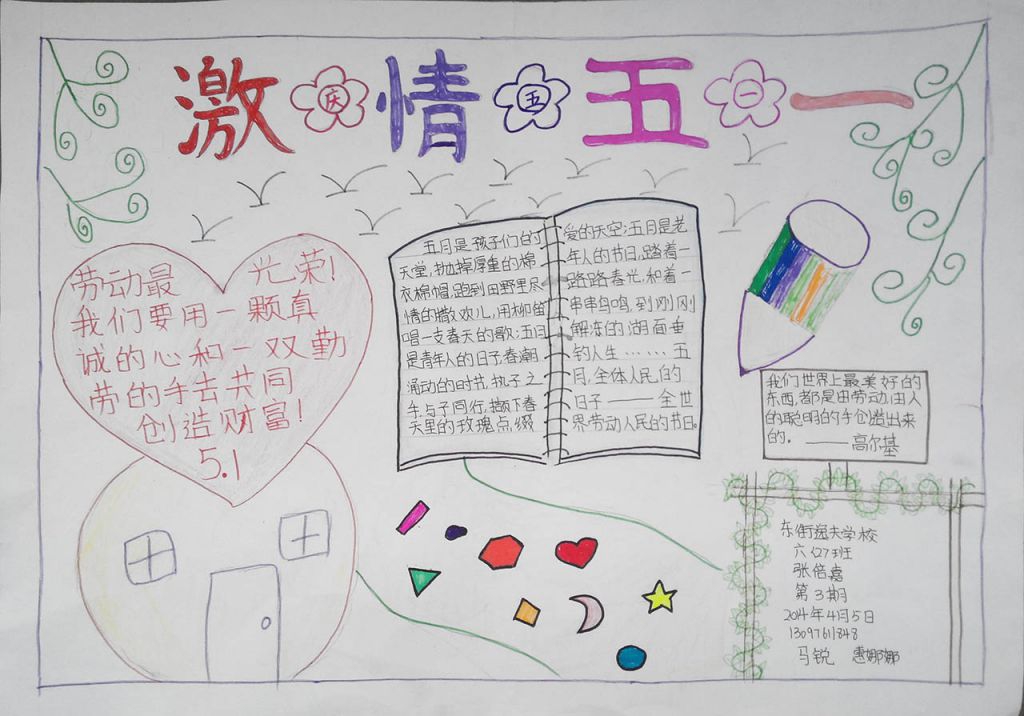 激 庆 情 五 五 一 一
劳动最 光荣!
我们要用一颗真
诚的心和一双勤
劳的手去共同
创造财富!
5.1
五月是孩子们的
天堂,抛掉厚重的棉
衣棉帽,跑到田野里尽
情的撒欢儿,用柳笛
唱一支春天的歌;五月
是青年人的日子,春潮
涌动的时节,执子之
手,与子同行,撷下春
天里的玫瑰点缀
爱的天空;五月是老
年人的节日,踏着一
路路春光,和着一
串串鸟鸣,到刚刚
解冻的湖面垂
钓人生……五
月,全体人民的
日子——全世
界劳动人民的节日。
我们世界上最美好的
东西,都是由劳动、由人
的聪明的手创造出来
的。 ——高尔基
东街逸夫学校
六(27)班
张倍嘉
第3期
2014年4月5日
1309761848
马锐 惠娜娜